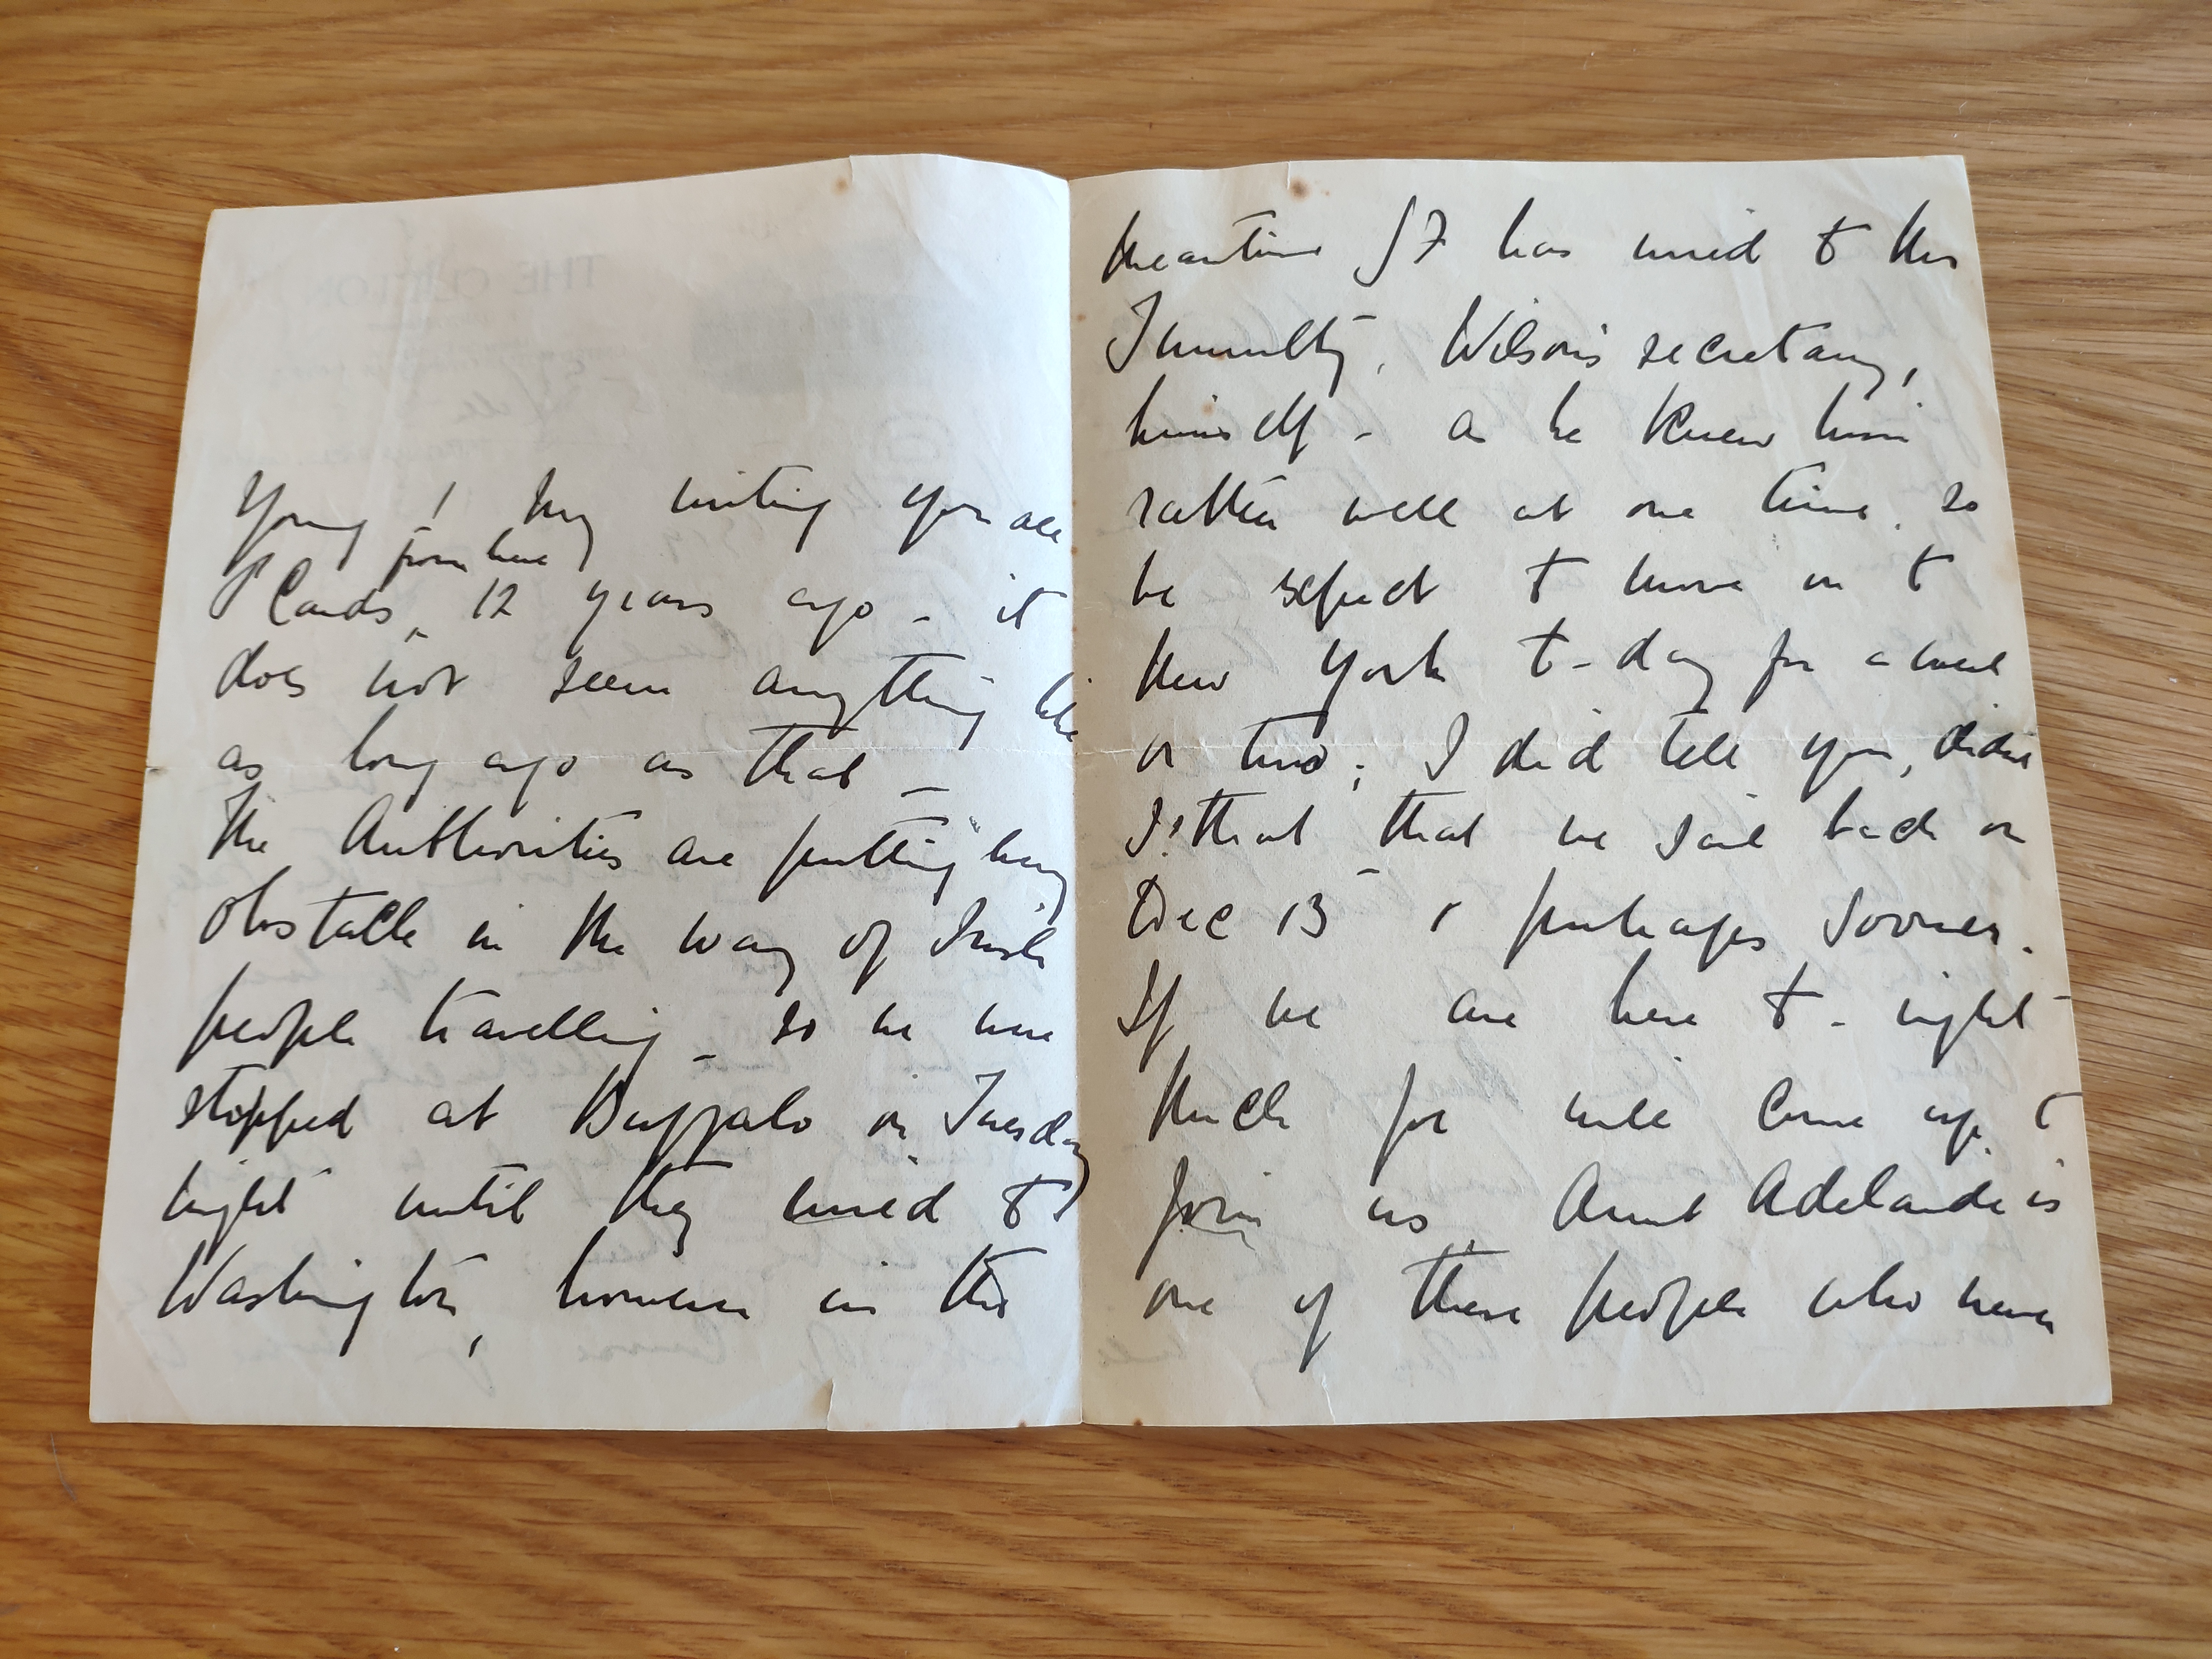 THE CLIFTON
Young & my writing you all
from here
P Cards, 12 years ago - it
does not seem anything like
as long ago as that -
The Authorities are putting every
obstacle in the way of Irish
people travelling - so we were
stopped at Buffalo on Tuesday
night until they wired to
Washington, however in the
meantime SF has wired to Mr
Tumulty, Wilson's secretary,
himself - as he knew him
rather well at one time, so
we expect to move on to
New York to-day for a week
or two; I did tell you, didn't
I? that that we sail back on
Dec 13 & perhaps sooner.
If we are here to-night
for will come up to
join us, Aunt Adelaide is
one of these people who never